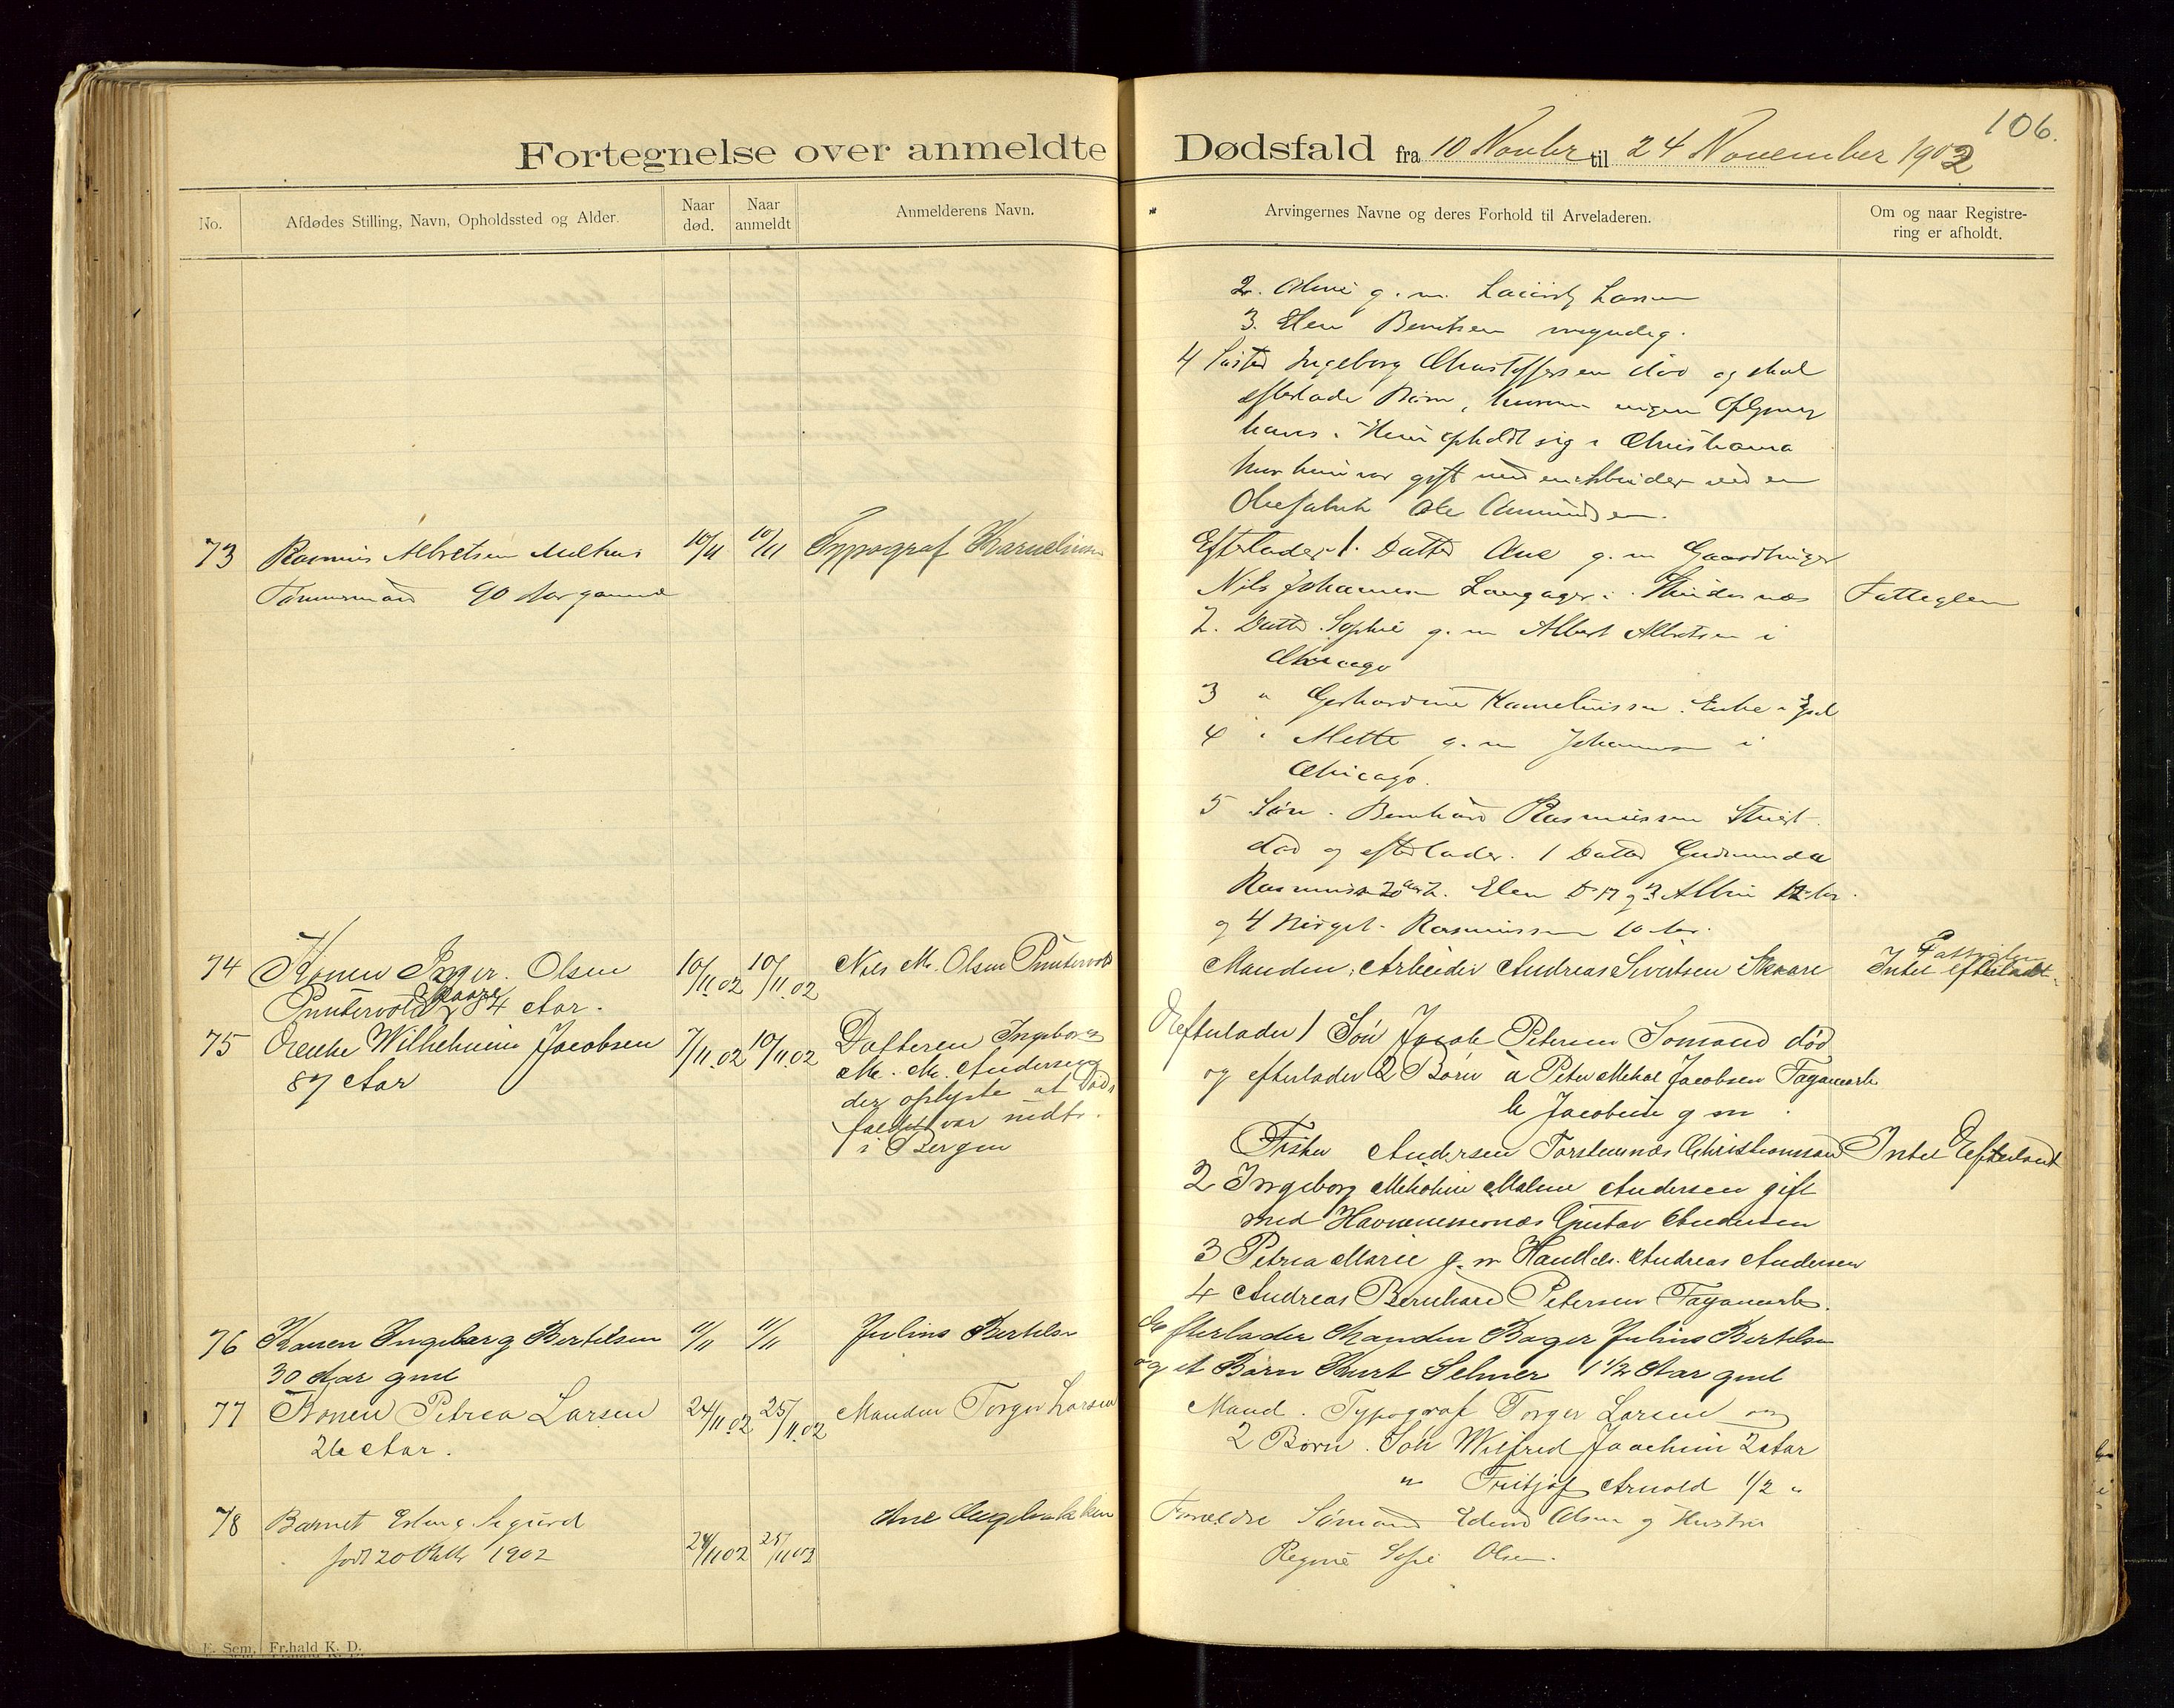 106.
Fortegnelse over anmeldte Dødsfald fra 10 Novbr til 24 November 1902
No.
Afdødes Stilling, Navn, Opholdssted og Alder.
Naar død.
Naar anmeldt
Anmelderens Navn.
Arvingernes Navne og deres Forhold til Arveladeren.
Om og naar Registrering er afholdt.
2. g. m. Lauritz Larsen
3. Elen Berntsen myndig.
4 Søster Ingeborg Christoffersen død og skal
efterlade Børn, hvorom ingen Oplysning
haves. Hun opholdt sig i Christiania
hvor hun var gift med en Arbeider ved en
Ole Amundsen.
73 Rasmus Albretsen
Tømmermand 90 Aar gammel
10/11 10/11 Typograf Karnelius
Efterlader 1. Datter Ane g. m
Nils Johannesen i
2. Datter Sophie g. m Albert Albretsen i
Chicago
3 " Gerhardine Enke
4 " Mette g. m Johannesen i
Chicago.
5 Søn. Bernhard Rasmussen
død og efterlader. 1 Datter Gudmunda
Rasmussen 20 Aar 2. Elen 17 og 3 Albin 12 Aar.
og 4 Birgit. Rasmussen 10 Aar.
74 Konen Inger. Olsen
Skaare
84 Aar.
10/11.02 10/11.02 Nils M. Olsen
Manden, Arbeider Andreas Sivertsen Skaare
Intet efterladt
75 Enke Wilhelmine Jacobsen
87 Aar
7/11.02 10/11.02 Datteren Ingeborg
M. M. Andersen
der oplyste at Døds
faldet var indtr.
i Bergen
Efterlader 1 Søn Jacob Petersen Sømand død
og efterlader 2 Børn a Peter Mekal Jacobsen
b Jacobine g m
Fisker Andersen Christianssand
Intet Efterladt
2 Ingeborg Mekoline Malene Andersen gift
med Gustav Andersen
3 Petrea Marie g. m Handels. Andreas Andersen
4 Andreas Bernhard Petersen
76 Konen Ingeborg Bertelsen
30 Aar gml
11/11 11/11 Julius Bertelsen
Efterlader Manden Bager Julius Bertelsen
og et Barn Kurt Selmer 1 1/2 Aar gml
77 Konen Petrea Larsen
26 Aar.
24/11.02 25/11.02 Manden Torger Larsen
Mand. Typograf Torger Larsen og
2 Børn. Søn Wilfred Joachim 2 Aar
" Fritjof Arnold 1/2 "
78 Barnet Erling Sigurd
født 20 1902
24/11 02 25/11 02
Forældre Sømand Edvard Olsen og Hustru
Regine Sofie Olsen.
E. Sem, Fr.hald K. D.